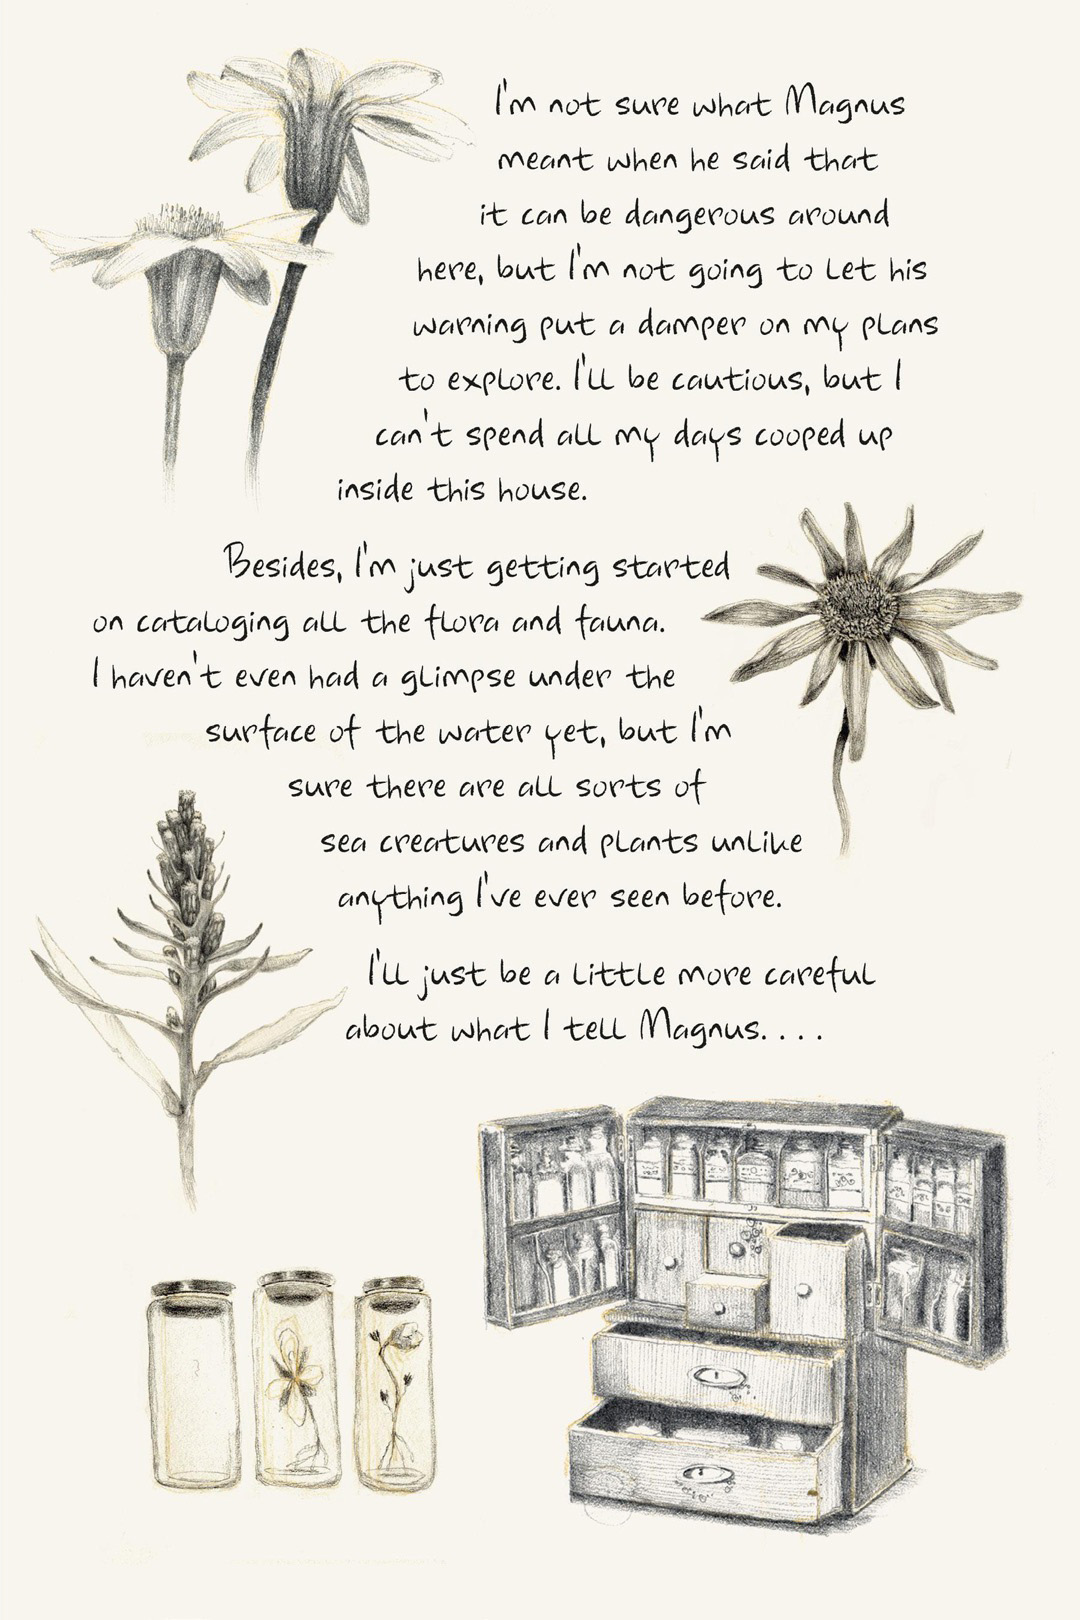 I'm not sure what Magnus
meant when he said that
it can be dangerous around
here, but I'm not going to let his
warning put a damper on my plans
to explore. I'll be cautious, but I
can't spend all my days cooped up
inside this house.
Besides, I'm just getting started
on cataloging all the flora and fauna.
I haven't even had a glimpse under the
surface of the water yet, but I'm
sure there are all sorts of
sea creatures and plants unlike
anything I've ever seen before.
I'll just be a little more careful
about what I tell Magnus. . . .